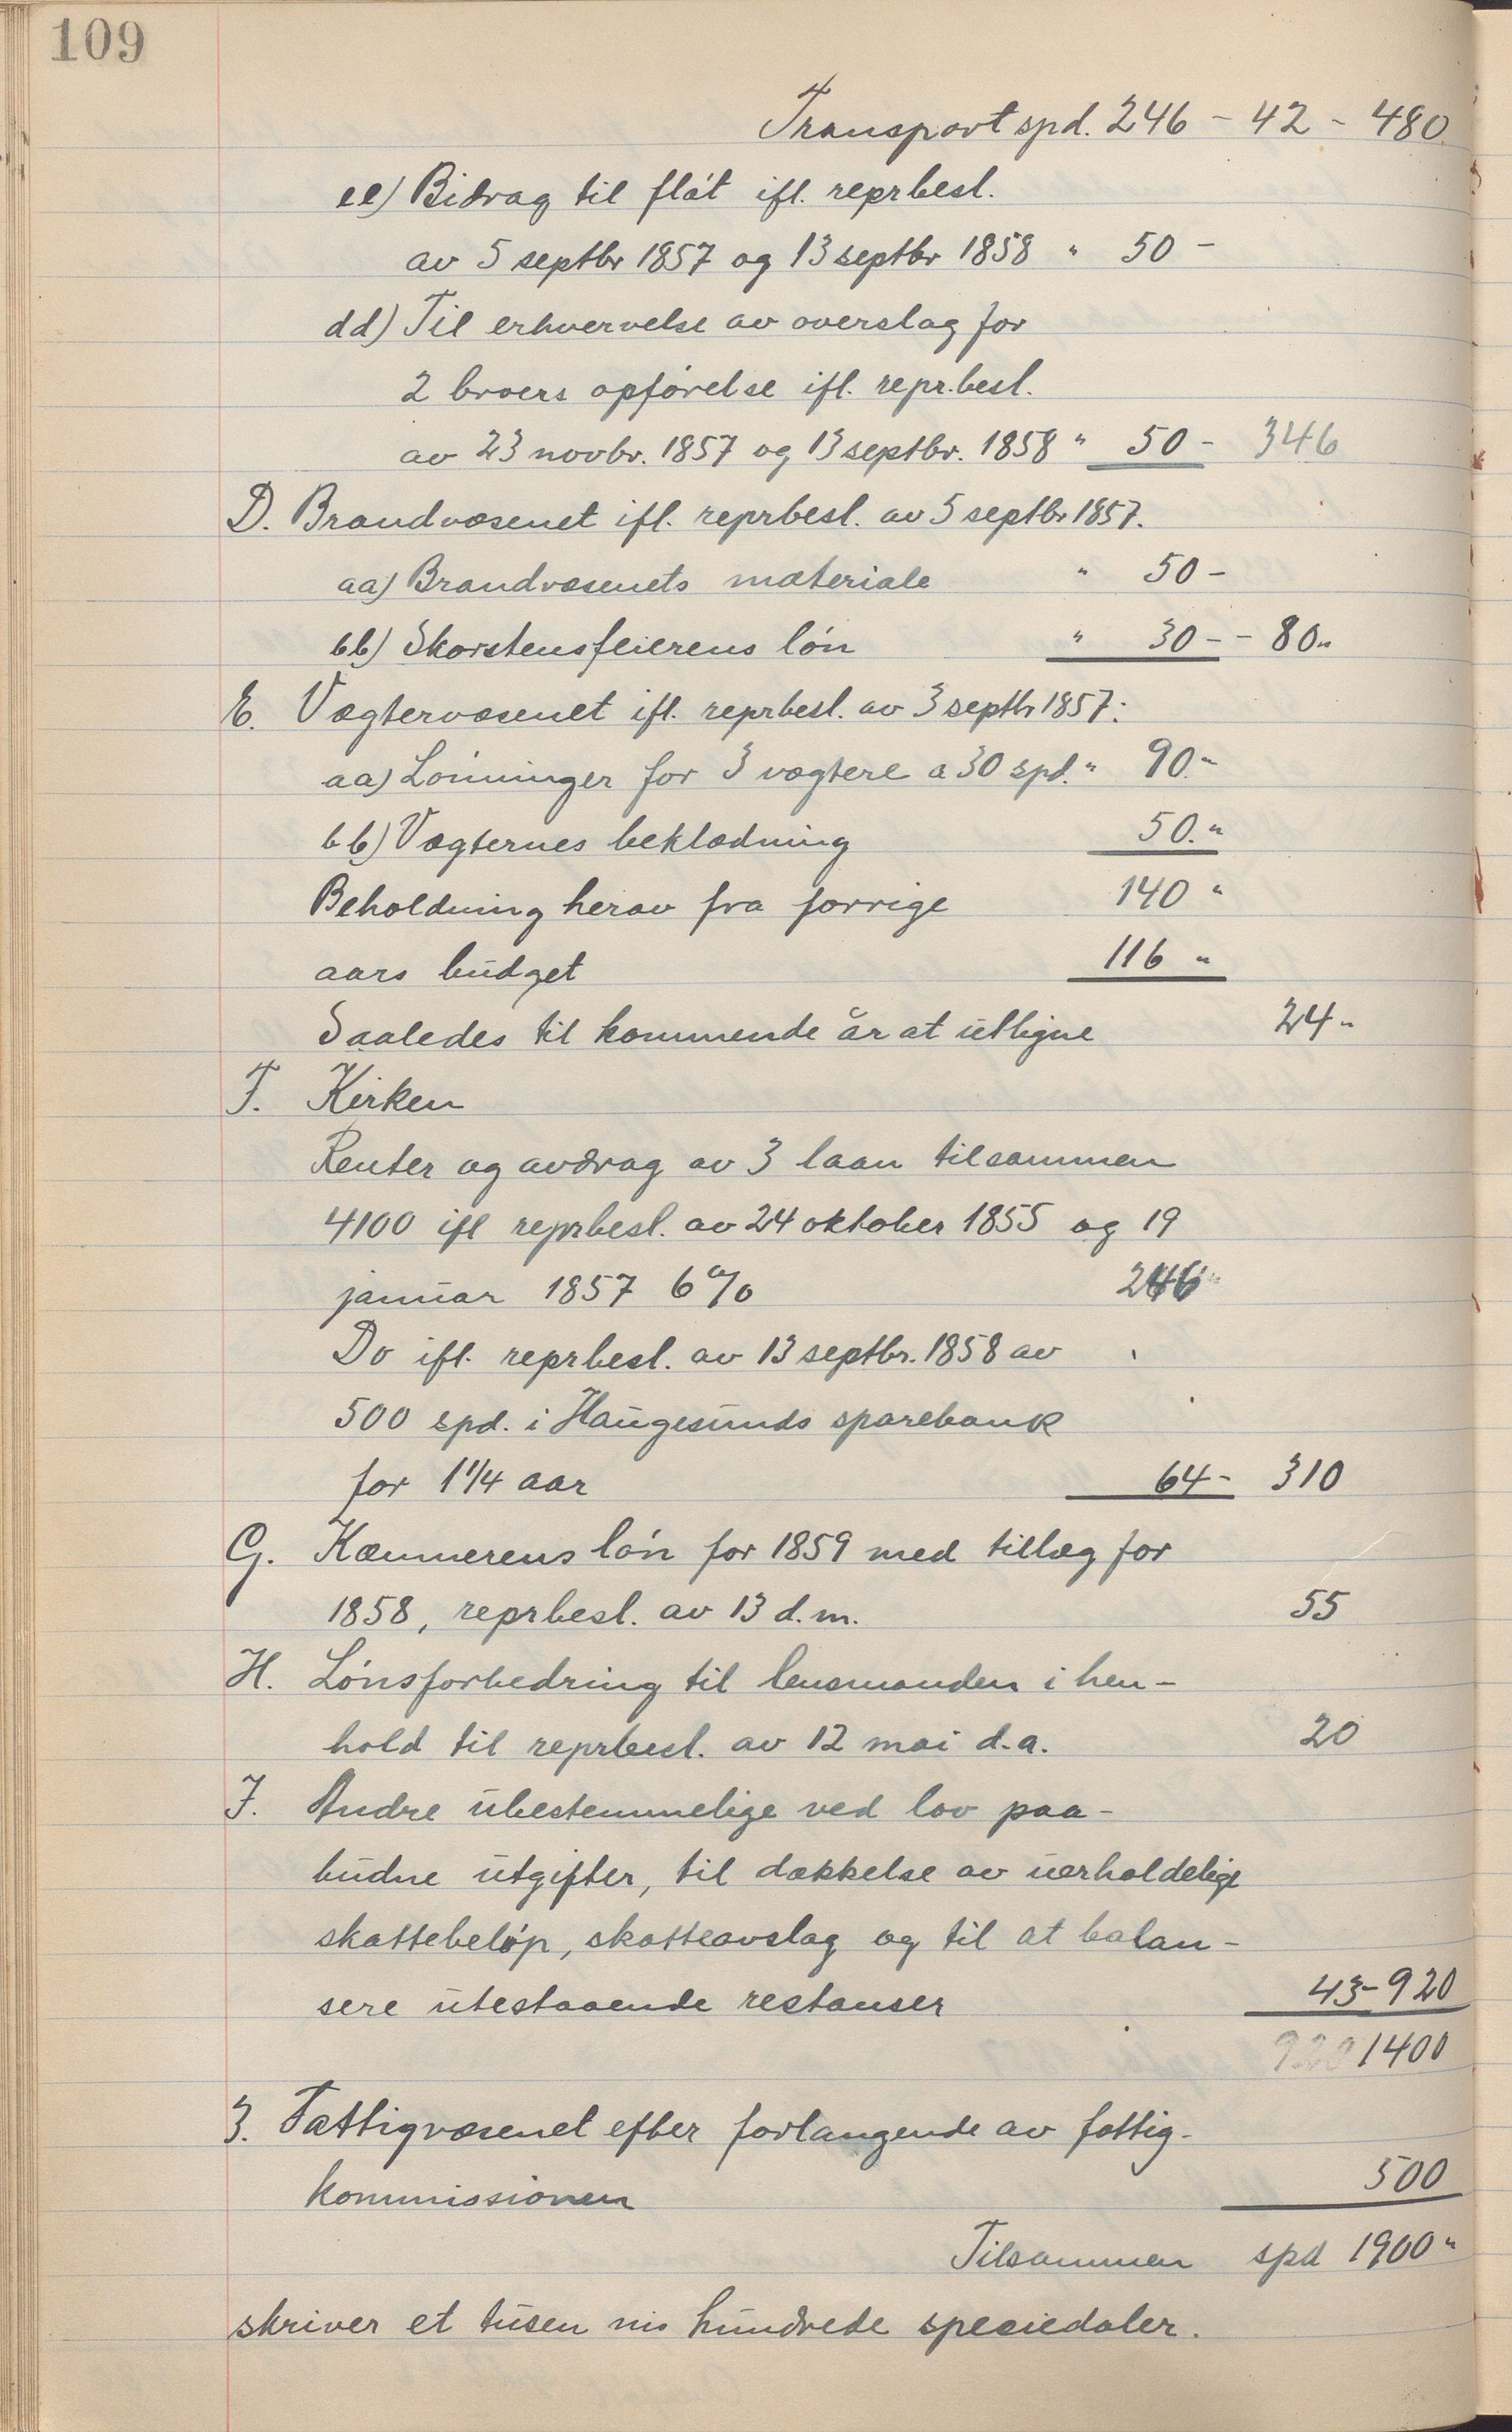 109
Transport spd. 246 - 42 - 480.
ee) Bidrag til flåt ifl. reprbesl.
av 5 septbr 1857 og 13 septbr 1858 " 50 -
dd) Til erhvervelse av overslag for
2 broers opførelse ifl. repr.besl.
av 23 novbr. 1857 og 13 septbr. 1858 " 50 - 346
D. Brandvæsenet ifl. reprbesl. av 5 septbr 1857.
aa) Brandvæsenets materiale " 50 -
bb) Skorstensfeierens løn " 30 - - 80 "
E. Vægtervæsenet ifl. reprbesl. av 3 septbr 1857:
aa) Lønninger for 3 vægtere a 30 spd. " 90. "
bb) Vægternes beklædning 50. "
Beholdning herav fra forrige 140 "
aars budget 116 "
Saaledes til kommende år at utligne 24 "
F. Kirken
Renter og avdrag av 3 laan tilsammen
4100 ifl reprbesl. av 24 oktober 1855 og 19
januar 1857 6 % 246 "
Do ifl. reprbesl. av 13 septbr. 1858 av
500 spd. i Haugesunds sparebank
for 1 1/4 aar 64 - 310
G. Kæmnerens løn for 1859 med tillæg for
1858, reprbesl. av 13 d.m. 55
H. Lønsforbedring til lensmanden i hen-
hold til reprbesl. av 12 mai d.a. 20
J. Andre ubestemmelige ved lov paa-
budne utgifter, til dækkelse av uerholdelige
skattebeløp, skatteavslag og til at balan-
sere utestaaende restanser 43 - 920
920 1400
3. Fattigvæsenet efter forlangende av fattig-
kommissionen 500
Tilsammen spd 1900 "
skriver et tusen ni hundrede speciedaler.